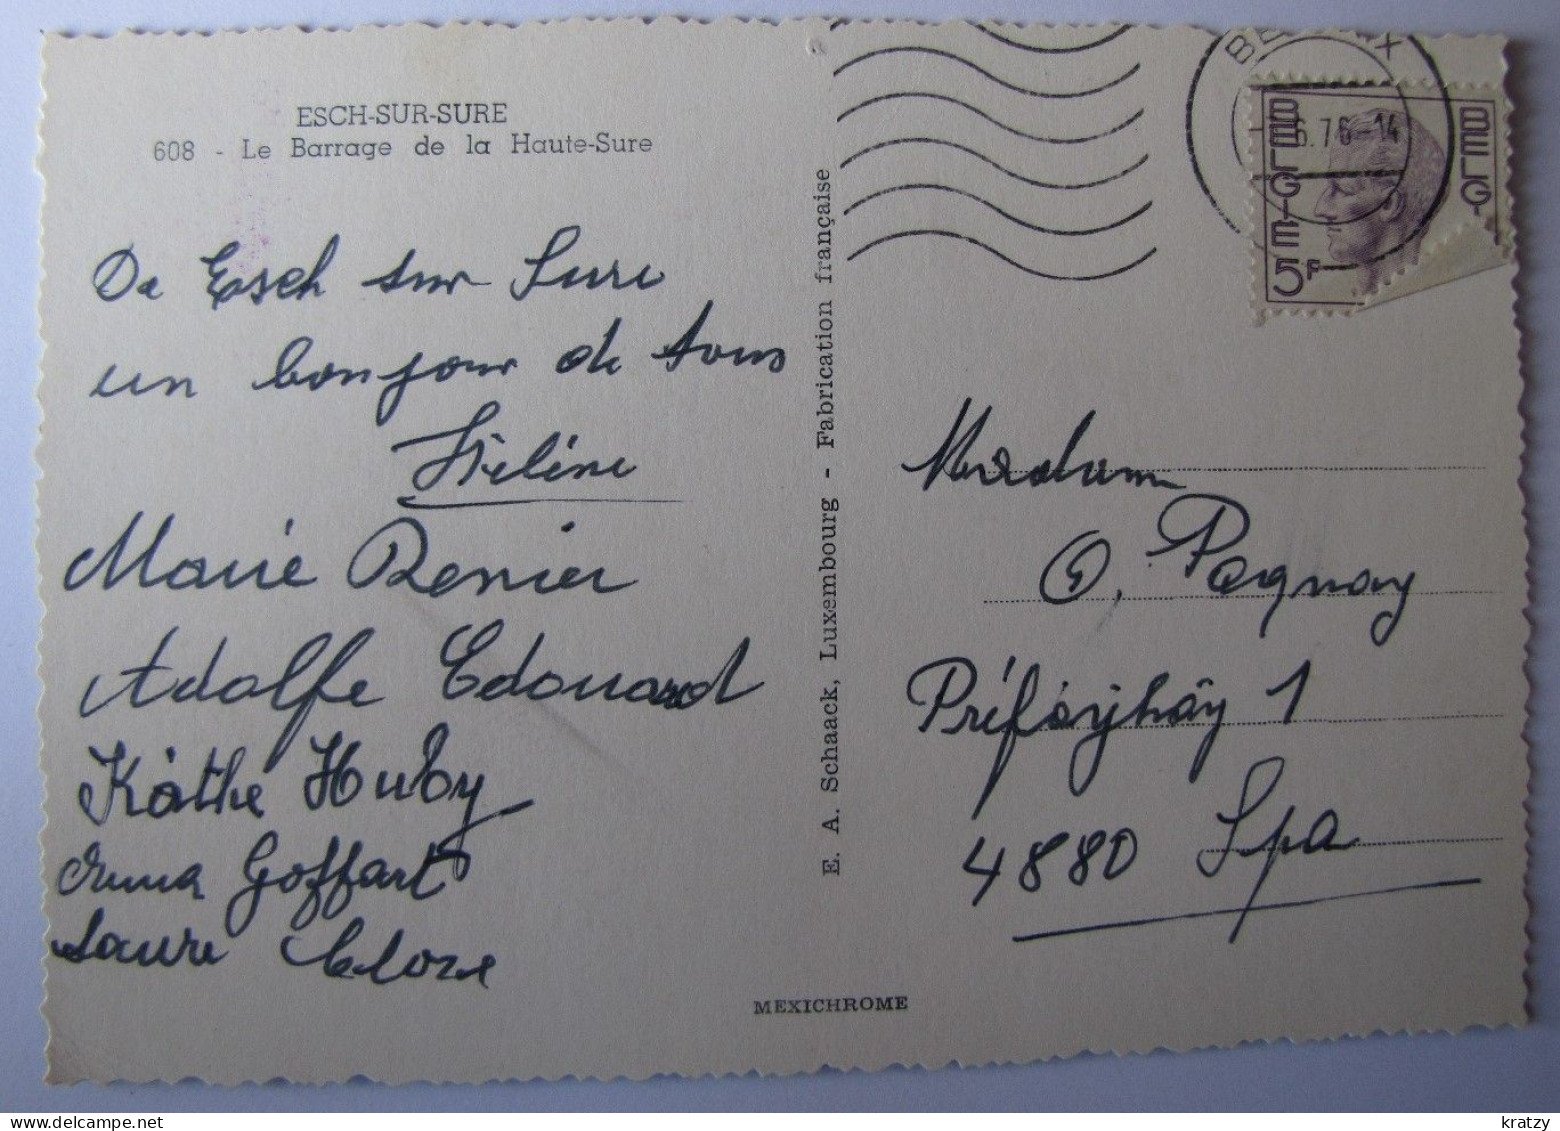 ESCH-SUR-SURE
608 - Le Barrage de la Haute-Sure
De Esch sur Sure
un bonjour de tous
Hélène
Marie Renier
Adolfe Edouard
Käthe Huby
Irma Goffart
Laure
E. A. Schaack, Luxembourg - Fabrication française
MEXICHROME
6.76-14
BELGIE
BELGI
5F
Madame
O. Pagnay
Préfayhay 1
4880 Spa
www.delcampe.net
kratzy